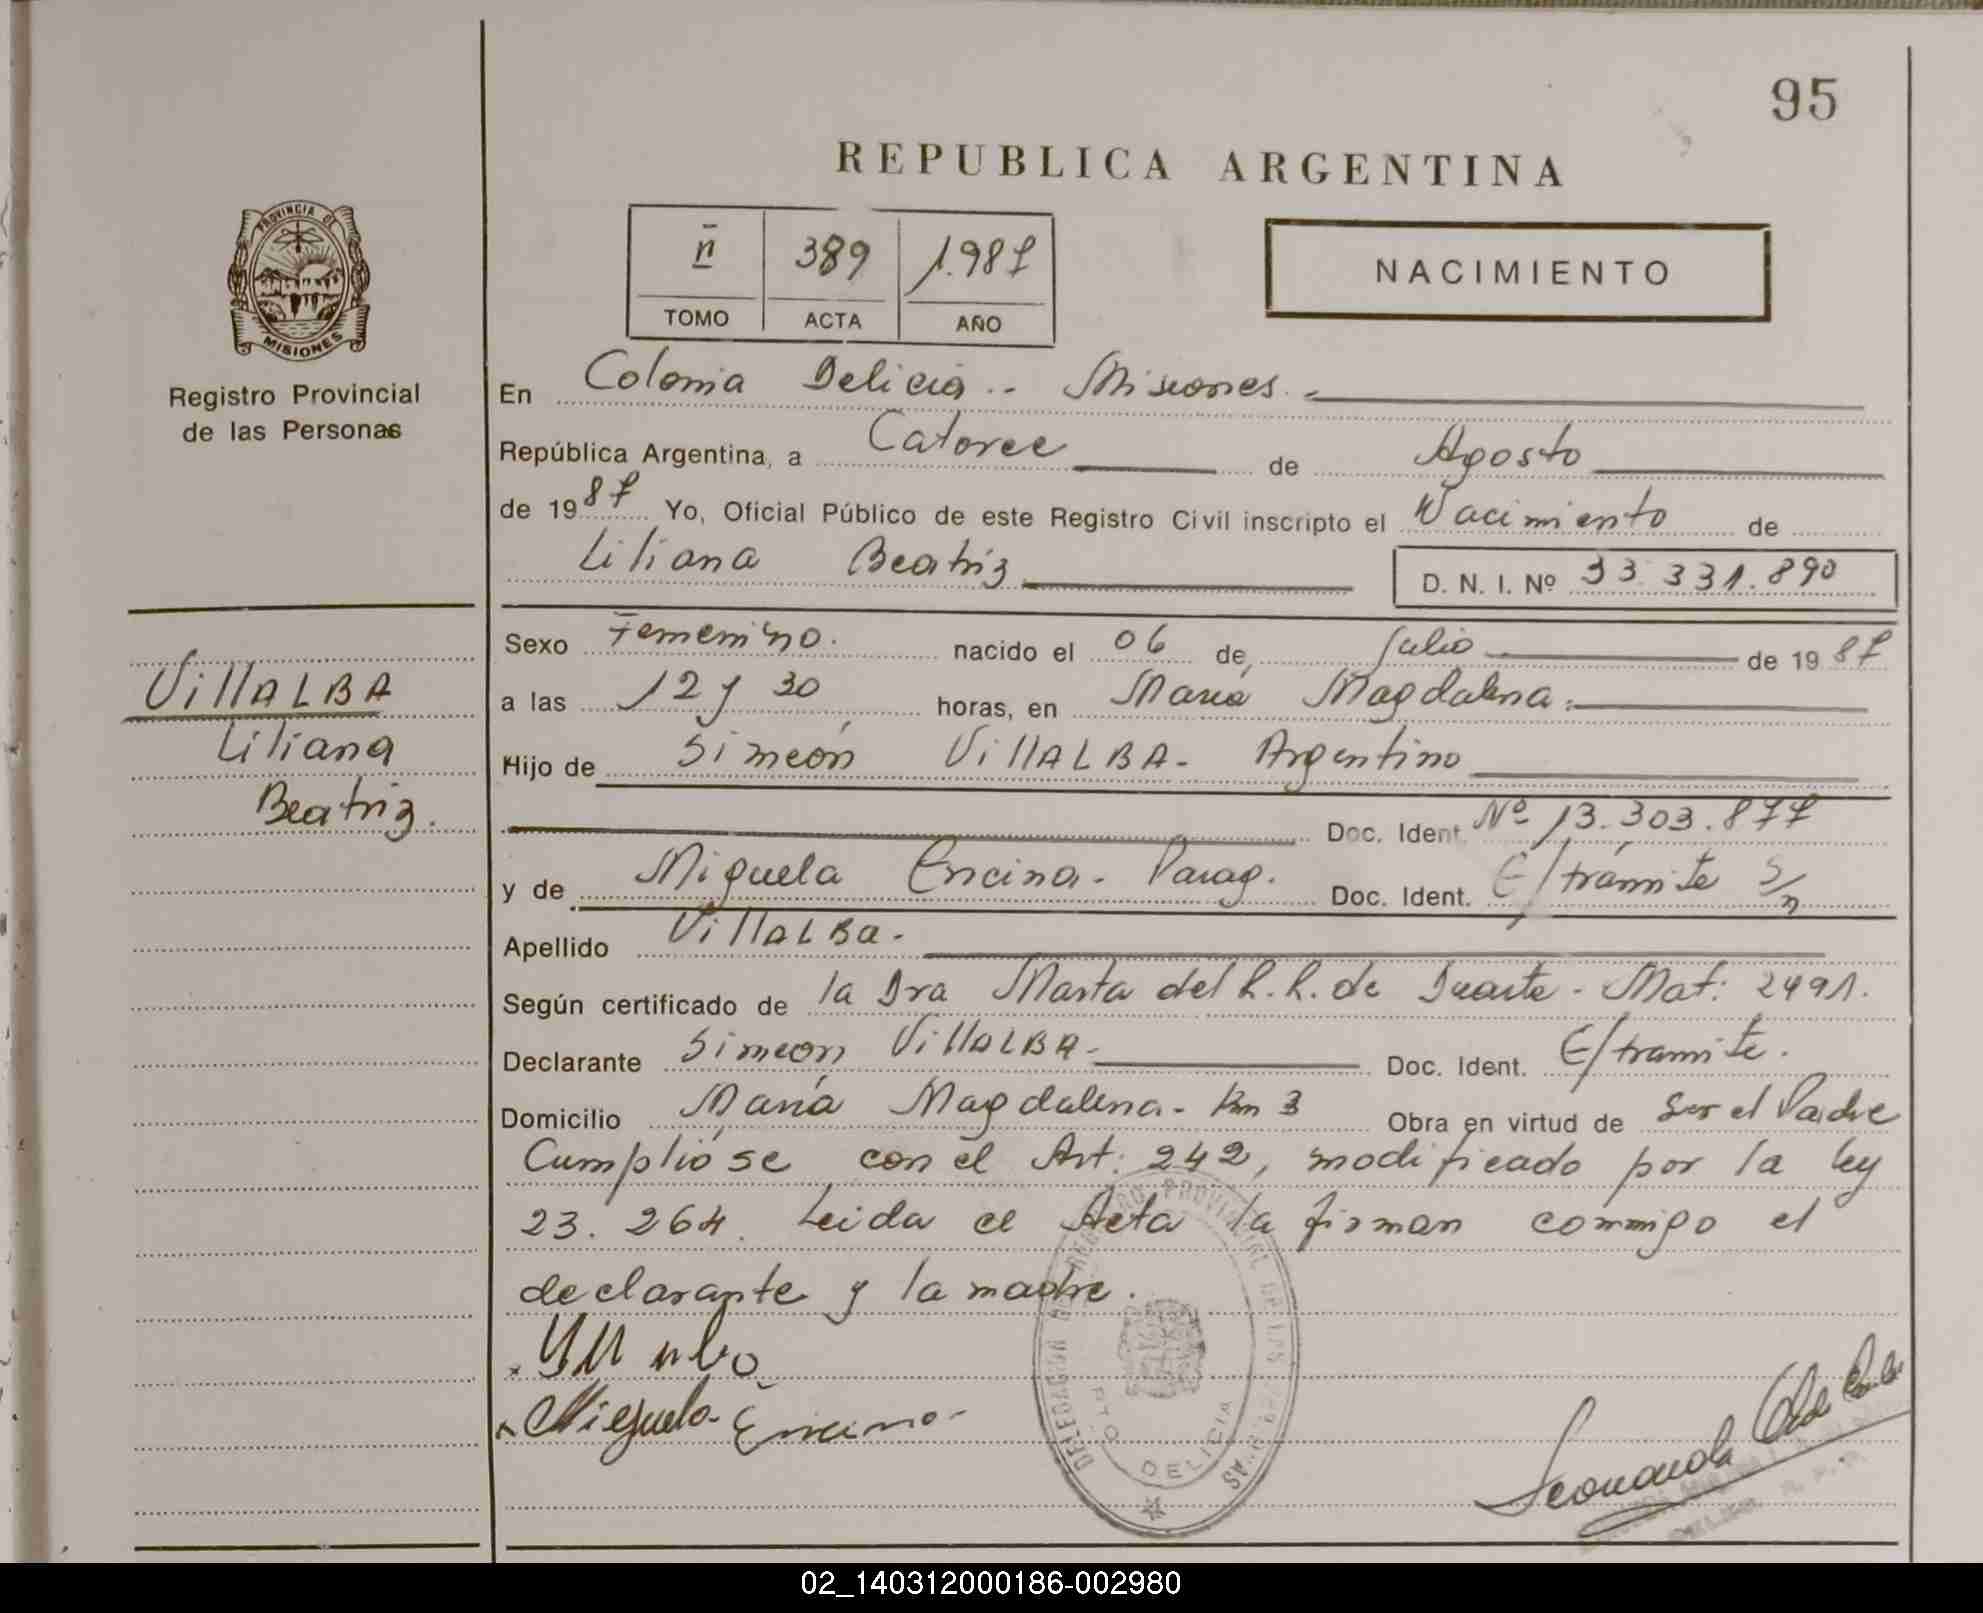 95
REPUBLICA ARGENTINA
PROVINCIA DE
MISIONES
Registro Provincial
de las Personas
n̄ 389 1.987
TOMO ACTA AÑO
NACIMIENTO
En Colonia Delicia.. Misiones.
República Argentina, a Catorce de Agosto
de 1987 Yo, Oficial Público de este Registro Civil inscripto el Nacimiento de
Liliana Beatriz D. N. I. Nº 33.331.890
VillALBA
Liliana
Beatriz.
Sexo Femenino. nacido el 06 de Julio de 1987
a las 12 y 30 horas, en María Magdalena.
Hijo de Simeón VillALBA- Argentino
Doc. Ident. Nº 13.303.877
y de Miguela Encina- Parag. Doc. Ident. E/trámite S/n
Apellido VillALBa-
Según certificado de la Dra Marta del R.R. de Duarte - Mat: 2491.
Declarante Simeón VillALBA- Doc. Ident. E/tramite.
Domicilio María Magdalena- Km 3 Obra en virtud de Ser el Padre
Cumplióse con el Art: 242, modificado por la ley
23.264. Leida el Acta la firman conmigo el
declarante y la madre.
Miguela Encina-
DELEGACION DEL REGISTRO PROVINCIAL DE LAS PERSONAS
PTO DELICIA
02_140312000186-002980